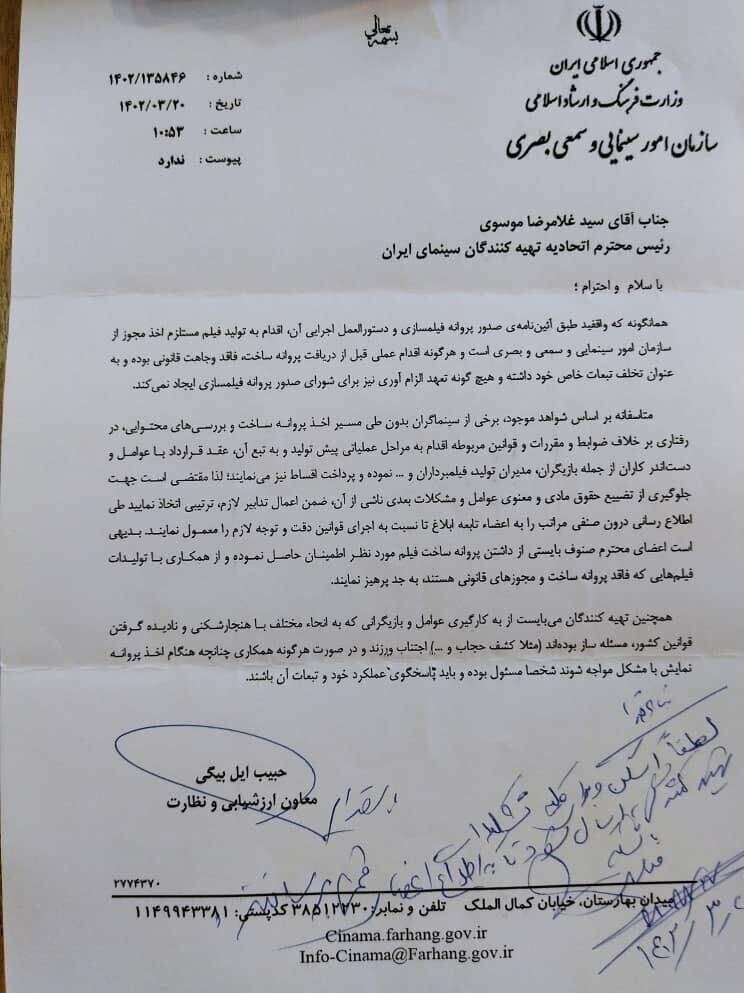 بسمه تعالی
جمهوری اسلامی ایران
وزارت فرهنگ و ارشاد اسلامی
سازمان امور سینمایی و سمعی بصری
شماره : ۱۴۰۲/۱۳۵۸۴۶
تاریخ : ۱۴۰۲/۰۳/۲۰
ساعت : ۱۰:۵۳
پیوست : ندارد
جناب آقای سید غلامرضا موسوی
رئیس محترم اتحادیه تهیه کنندگان سینمای ایران
با سلام و احترام ؛
همانگونه که واقفید طبق آئین‌نامه‌ی صدور پروانه فیلمسازی و دستورالعمل اجرایی آن، اقدام به تولید فیلم مستلزم اخذ مجوز از
سازمان امور سینمایی و سمعی و بصری است و هرگونه اقدام عملی قبل از دریافت پروانه ساخت، فاقد وجاهت قانونی بوده و به
عنوان تخلف تبعات خاص خود داشته و هیچ گونه تعهد الزام آوری نیز برای شورای صدور پروانه فیلمسازی ایجاد نمی‌کند.
متاسفانه بر اساس شواهد موجود، برخی از سینماگران بدون طی مسیر اخذ پروانه ساخت و بررسی‌های محتوایی، در
رفتاری بر خلاف ضوابط و مقررات و قوانین مربوطه اقدام به مراحل عملیاتی پیش تولید و به تبع آن، عقد قرارداد با عوامل و
دست‌اندر کاران از جمله بازیگران، مدیران تولید، فیلمبرداران و ... نموده و پرداخت اقساط نیز می‌نمایند؛ لذا مقتضی است جهت
جلوگیری از تضییع حقوق مادی و معنوی عوامل و مشکلات بعدی ناشی از آن، ضمن اعمال تدابیر لازم، ترتیبی اتخاذ نمایید طی
اطلاع رسانی درون صنفی مراتب را به اعضاء تابعه ابلاغ تا نسبت به اجرای قوانین دقت و توجه لازم را معمول نمایند. بدیهی
است اعضای محترم صنوف بایستی از داشتن پروانه ساخت فیلم مورد نظر اطمینان حاصل نموده و از همکاری با تولیدات
فیلم‌هایی که فاقد پروانه ساخت و مجوزهای قانونی هستند، به جد پرهیز نمایند.
همچنین تهیه کنندگان می‌بایست از به کارگیری عوامل و بازیگرانی که به انحاء مختلف با هنجارشکنی و نادیده گرفتن
قوانین کشور، مسئله ساز بوده‌اند (مثلا کشف حجاب و ...) اجتناب ورزند و در صورت هرگونه همکاری چنانچه هنگام اخذ پروانه
نمایش با مشکل مواجه شوند شخصا مسئول بوده و باید پاسخگوی عملکرد خود و تبعات آن باشند.
حبیب ایل بیگی
معاون ارزشیابی و نظارت
لطفاً
ارسال
تا به اطلاع اعضا
۲۷۷۴۳۷۰
میدان بهارستان، خیابان کمال الملک تلفن و نمابر: ۳۸۵۱۲۲۳۰ کدپستی: ۱۱۴۹۹۴۳۳۸۱
Cinama.farhang.gov.ir
Info-Cinama@Farhang.gov.ir